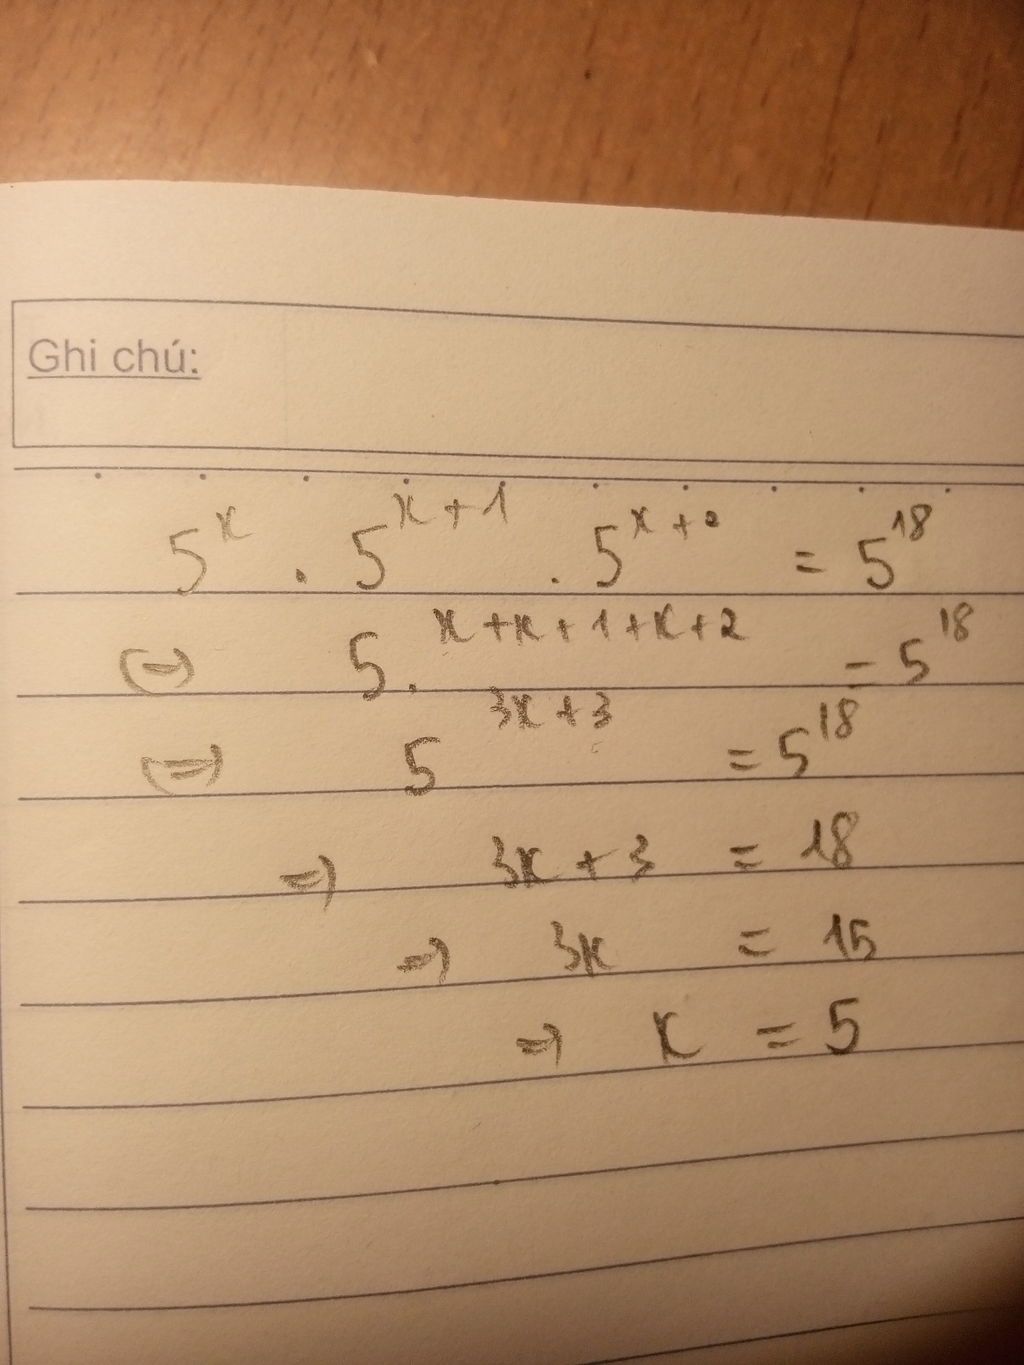 Ghi chú:
5^x . 5^{x+1} . 5^{x+2} = 5^{18}
(=) 5.^{x+x+1+x+2} = 5^{18}
(=) 5^{3x+3} = 5^{18}
=) 3x + 3 = 18
=) 3x = 15
=) x = 5